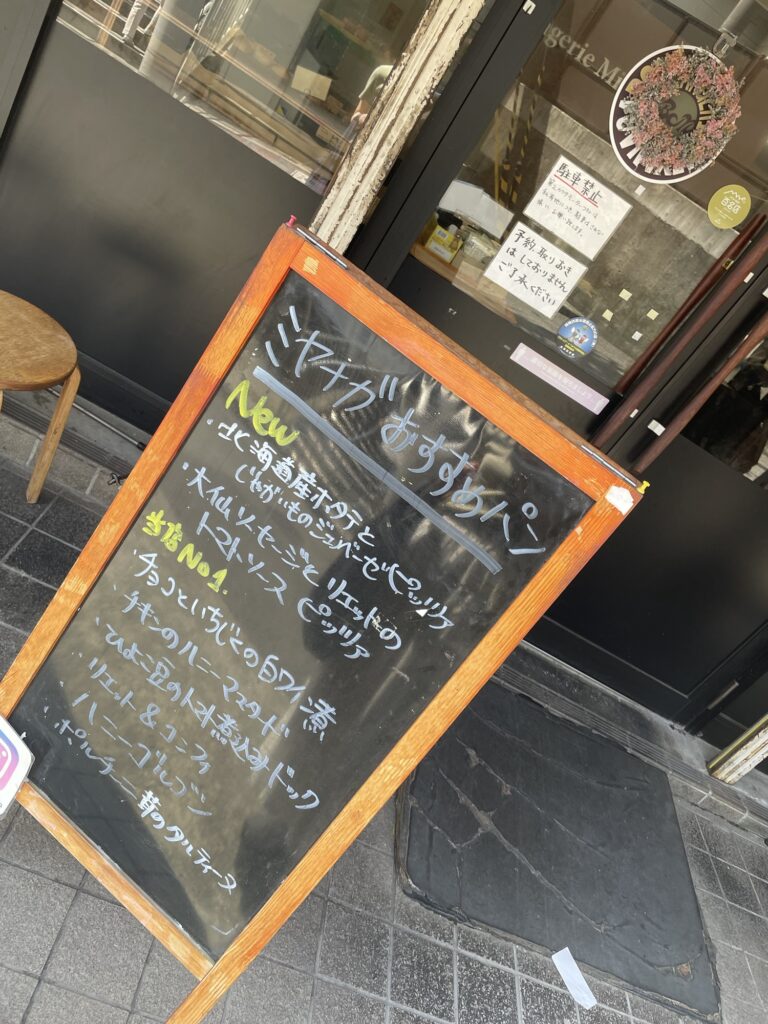 ngerie Mi
駐車禁止
予約、取りおき
はしておりません
ご了承ください
ミヤナガ おすすめパン
New
・北海道産ホタテと
じゃがいものジェノベーゼピッツァ
・大仙ソーセージとリエットの
トマトソース ピッツァ
当店No1.
・チョコといちじくの白ワイン煮
・チキンのハニーマスタード
・ひよこ豆のトマト煮込みドック
・リエット&コンフィ
・ハニーゴルゴンゾ
・ポルチーニ茸のタルティーヌ